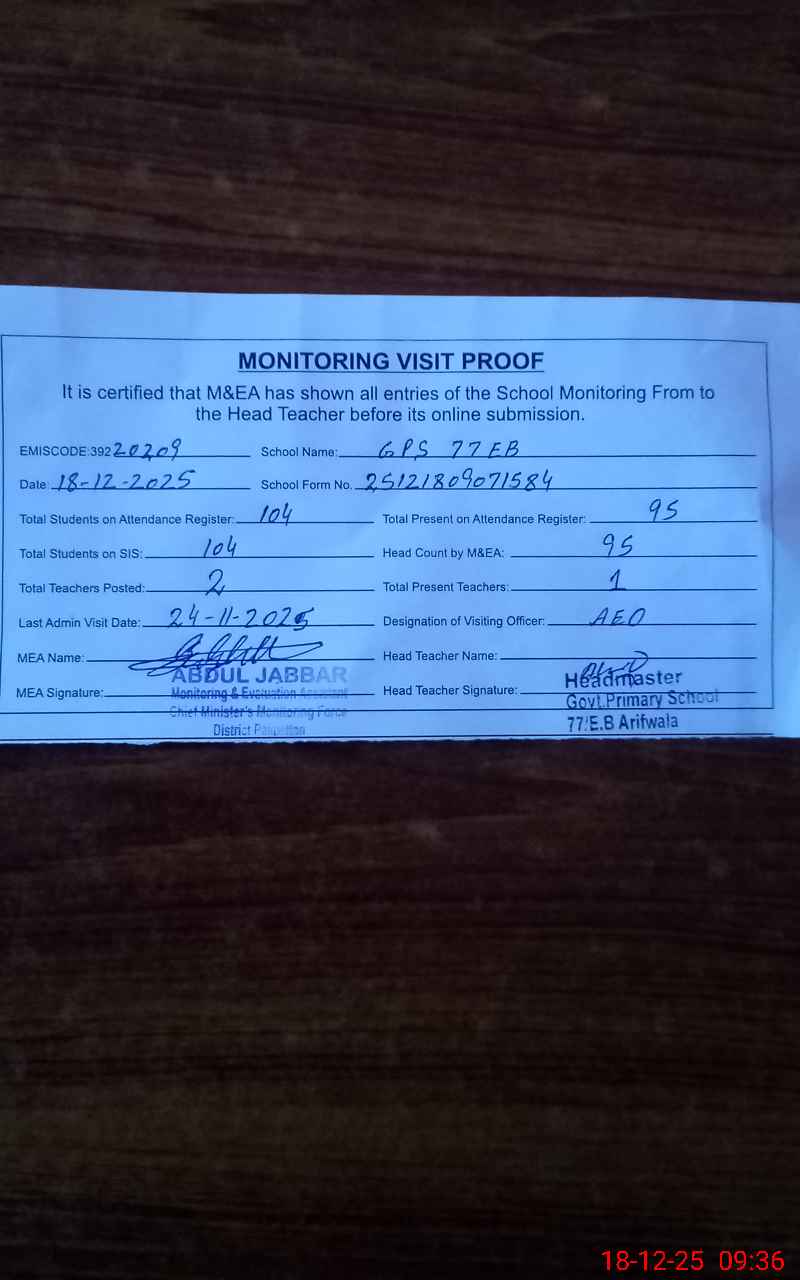 MONITORING VISIT PROOF
It is certified that M&EA has shown all entries of the School Monitoring From to
the Head Teacher before its online submission.
EMISCODE:392 20209 School Name: GPS 77 EB
Date 18-12-2025 School Form No. 25121809071584
Total Students on Attendance Register: 104 Total Present on Attendance Register: 95
Total Students on SIS: 104 Head Count by M&EA: 95
Total Teachers Posted: 2 Total Present Teachers: 1
Last Admin Visit Date: 24-11-2025 Designation of Visiting Officer: AEO
MEA Name: Head Teacher Name:
ABDUL JABBAR Headmaster
MEA Signature: Monitoring & Evaluation Assistant Head Teacher Signature: Govt. Primary School
Chief Minister's Monitoring Force 77/E.B Arifwala
District Pakpattan
18-12-25 09:36